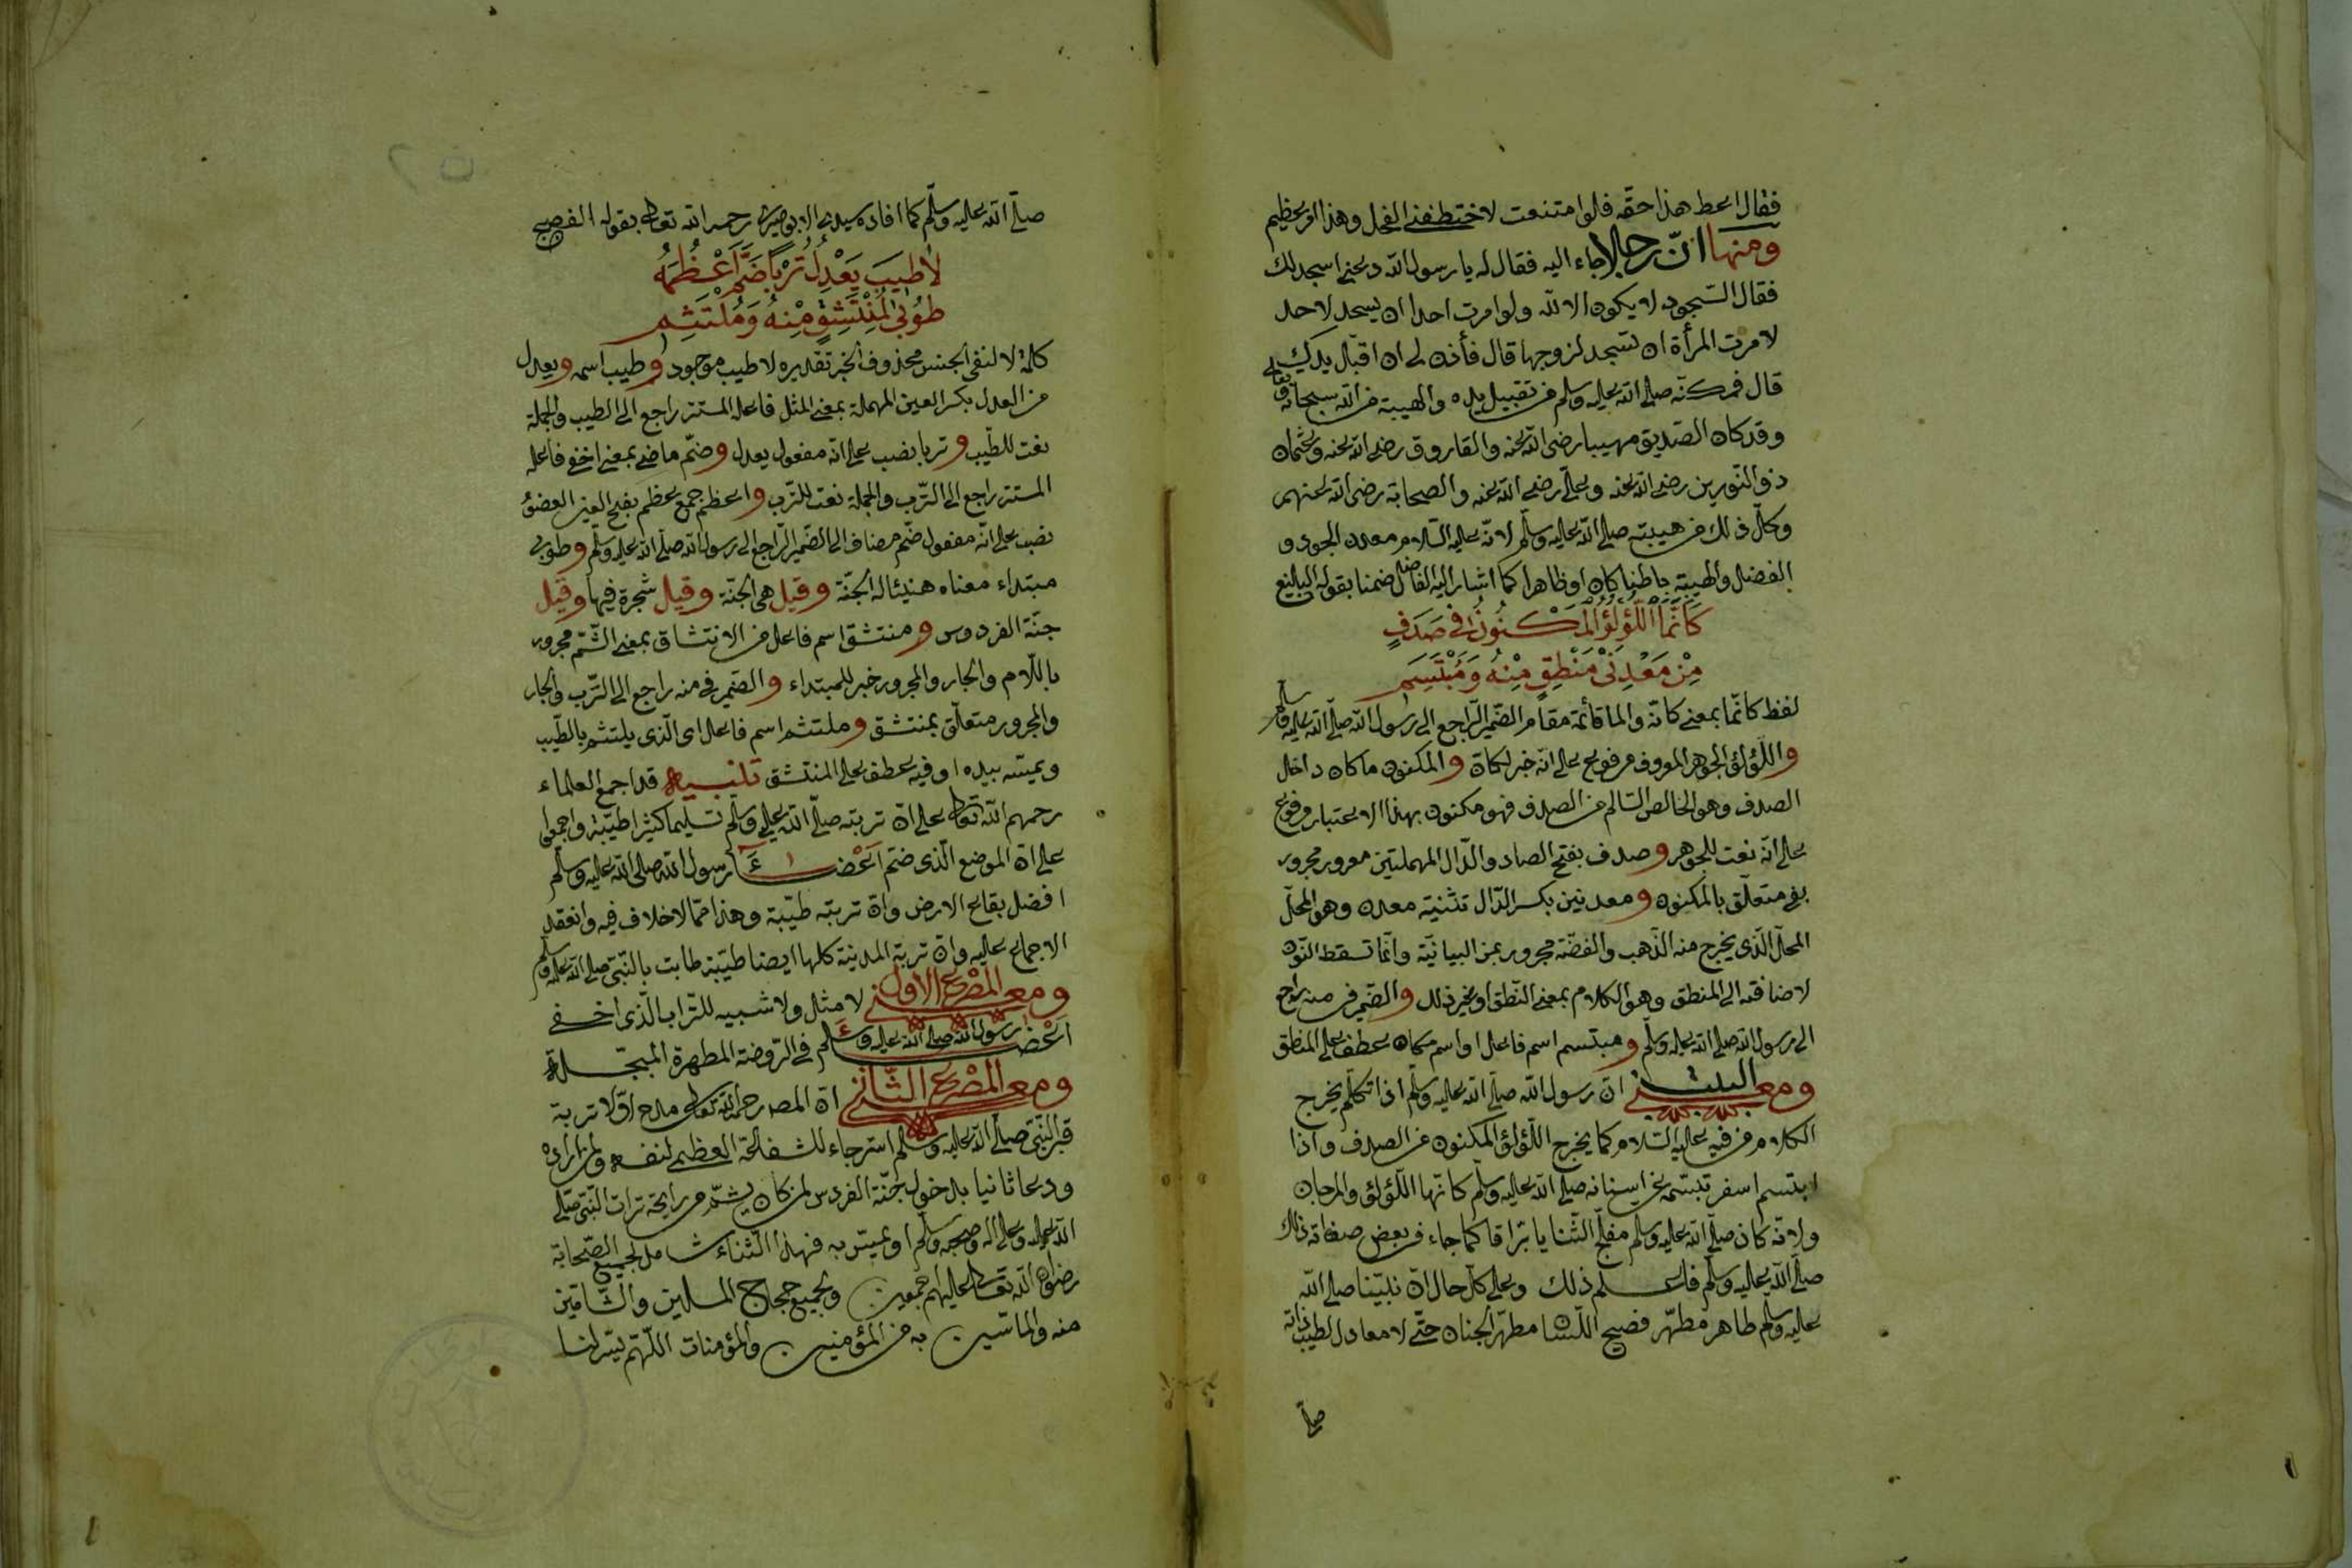 فقال اعط هذا حقه فلوا متنعت لاختطفنى الفحل وهذا امر عظيم
ومنها ان رجلا جاء اليه فقال له يا رسول الله دعنى اسجد لك
فقال السجود لا يكون الا لله ولو امرت احدا ان يسجد لاحد
لامرت المرأة ان تسجد لزوجها قال فأذن لى ان اقبل يديك
قال فمكنه صلى الله عليه وسلم من تقبيل يده والهيبة من الله سبحانه وتعالى
وقد كان الصديق مهيبا رضى الله عنه والفاروق رضى الله عنه وعثمان
ذو النورين رضى الله عنه وعلى رضى الله عنه والصحابة رضى الله عنهم
وكل ذلك من هيبته صلى الله عليه وسلم لانه عليه السلام معدن الجود و
الفضل والهيبة باطنا كان او ظاهرا كما اشار اليه الفاضل ضمنا بقوله البليغ
كَأَنَّمَا اللُّؤْلُؤُ الْمَكْنُونُ فِى صَدَفٍ
مِنْ مَعْدِنَىْ مَنْطِقٍ مِنْهُ وَمُبْتَسَمِ
لفظ كانما بمعنى كانه والما قائمة مقام الضمير الراجع الى رسول الله صلى الله عليه وسلم
واللؤلؤ الجوهر المعروف مرفوع على انه خبر لكان والمكنون ما كان داخل
الصدف وهو الخالص السالم من الصدف فهو مكنون بهذا الاعتبار مرفوع
على انه نعت للجوهر وصدف بفتح الصاد والدال المهملتين معرور مجرور
بفى متعلق بالمكنون ومعدنين بكسر الدال تثنية معدن وهو المحل
المحل الذى يخرج منه الذهب والفضة مجرور بمن البيانية وانما تسقط النون
لاضافته الى المنطق وهو الكلام بمعنى النطق او غير ذلك والضمير فى منه راجع
الى رسول الله صلى الله عليه وسلم ومبتسم اسم فاعل او اسم مكان عطف على المنطق
ومعنى البيت ان رسول الله صلى الله عليه وسلم اذا تكلم يخرج
الكلام من فيه عليه السلام كما يخرج اللؤلؤ المكنون من الصدف واذا
ابتسم اسفر تبسمه عن اسنانه صلى الله عليه وسلم كانها اللؤلؤ والمرجان
ولانه كان صلى الله عليه وسلم مفلج الثنايا براقا كما جاء فى بعض صفاته ذلك
صلى الله عليه وسلم فاعلم ذلك وعلى كل حال ان نبينا صلى الله
عليه وسلم طاهر مطهر فصيح اللسان مطهر الجنان حتى لا معادل لطيب ذاته
صلى
صلى الله عليه وسلم كما افاده سيدى الابوصيرى رحمه الله تعالى بقوله الفصيح
لَا طِيبَ يَعْدِلُ تُرْبًا ضَمَّ أَعْظُمَهُ
طُوبَى لِمُنْتَشِقٍ مِنْهُ وَمُلْتَثِمِ
كلمة لا لنفى الجنس محذوف الخبر تقديره لا طيب موجود وطيب اسمه ويعدل
من العدل بكسر العين المهملة بمعنى المثل فاعله المستتر راجع الى الطيب والجملة
نعت للطيب وتربا نصب على انه مفعول يعدل وضم ماضى بمعنى اخفى فاعله
المستتر راجع الى الترب والجملة نعت للترب واعظم جمع عظم بفتح العين العضو
نصب على انه مفعول ضم مضاف الى الضمير الراجع الى رسول الله صلى الله عليه وسلم وطوبى
مبتداء معناه هنيئا له الجنة وقيل هى الجنة وقيل شجرة فيها وقيل
جنة الفردوس ومنتشق اسم فاعل من الانتشاق بمعنى الشم مجرور
باللام والجار والمجرور خبر للمبتداء والضمير فى منه راجع الى الترب والجار
والمجرور متعلق بمنتشق وملتثم اسم فاعل اى الذى يلتثم بالطيب
ويمسه بيده او فيه عطف على المنتشق تنبيه قد اجمع العلماء
رحمهم الله تعالى على ان تربته صلى الله عليه وسلم تسليما كثيرا طيبة واجمعوا
على ان الموضع الذى ضم اعضاء رسول الله صلى الله عليه وسلم
افضل بقاع الارض وان تربته طيبة وهذا مما لا خلاف فيه وانعقد
الاجماع عليه وان تربة المدينة كلها ايضا طيبة طابت بالنبى صلى الله عليه وسلم
ومعنى المصرع الاول لا مثل ولا شبيه للتراب الذى اخفى
اعضاء رسول الله صلى الله عليه وسلم فى الروضة المطهرة المبجلة
ومعنى المصرع الثانى ان المصـ رحمه الله تعالى مدح اولا تربة
قبر النبى صلى الله عليه وسلم استرجاء للشفاعة العظمى لنفسه ولمن زاره
ودعا ثانيا بدخول جنة الفردوس لمن كان يشم من رايحة تراب النبى صلى
الله عليه وعلى اله وصحبه وسلم او يمس به فهذا الثناء شامل لجميع الصحابة
رضوان الله تعالى عليهم اجمعين ولجميع حجاج المسلمين والشامين
منه والماسين به من المؤمنين والمؤمنات اللهم يسر لنا